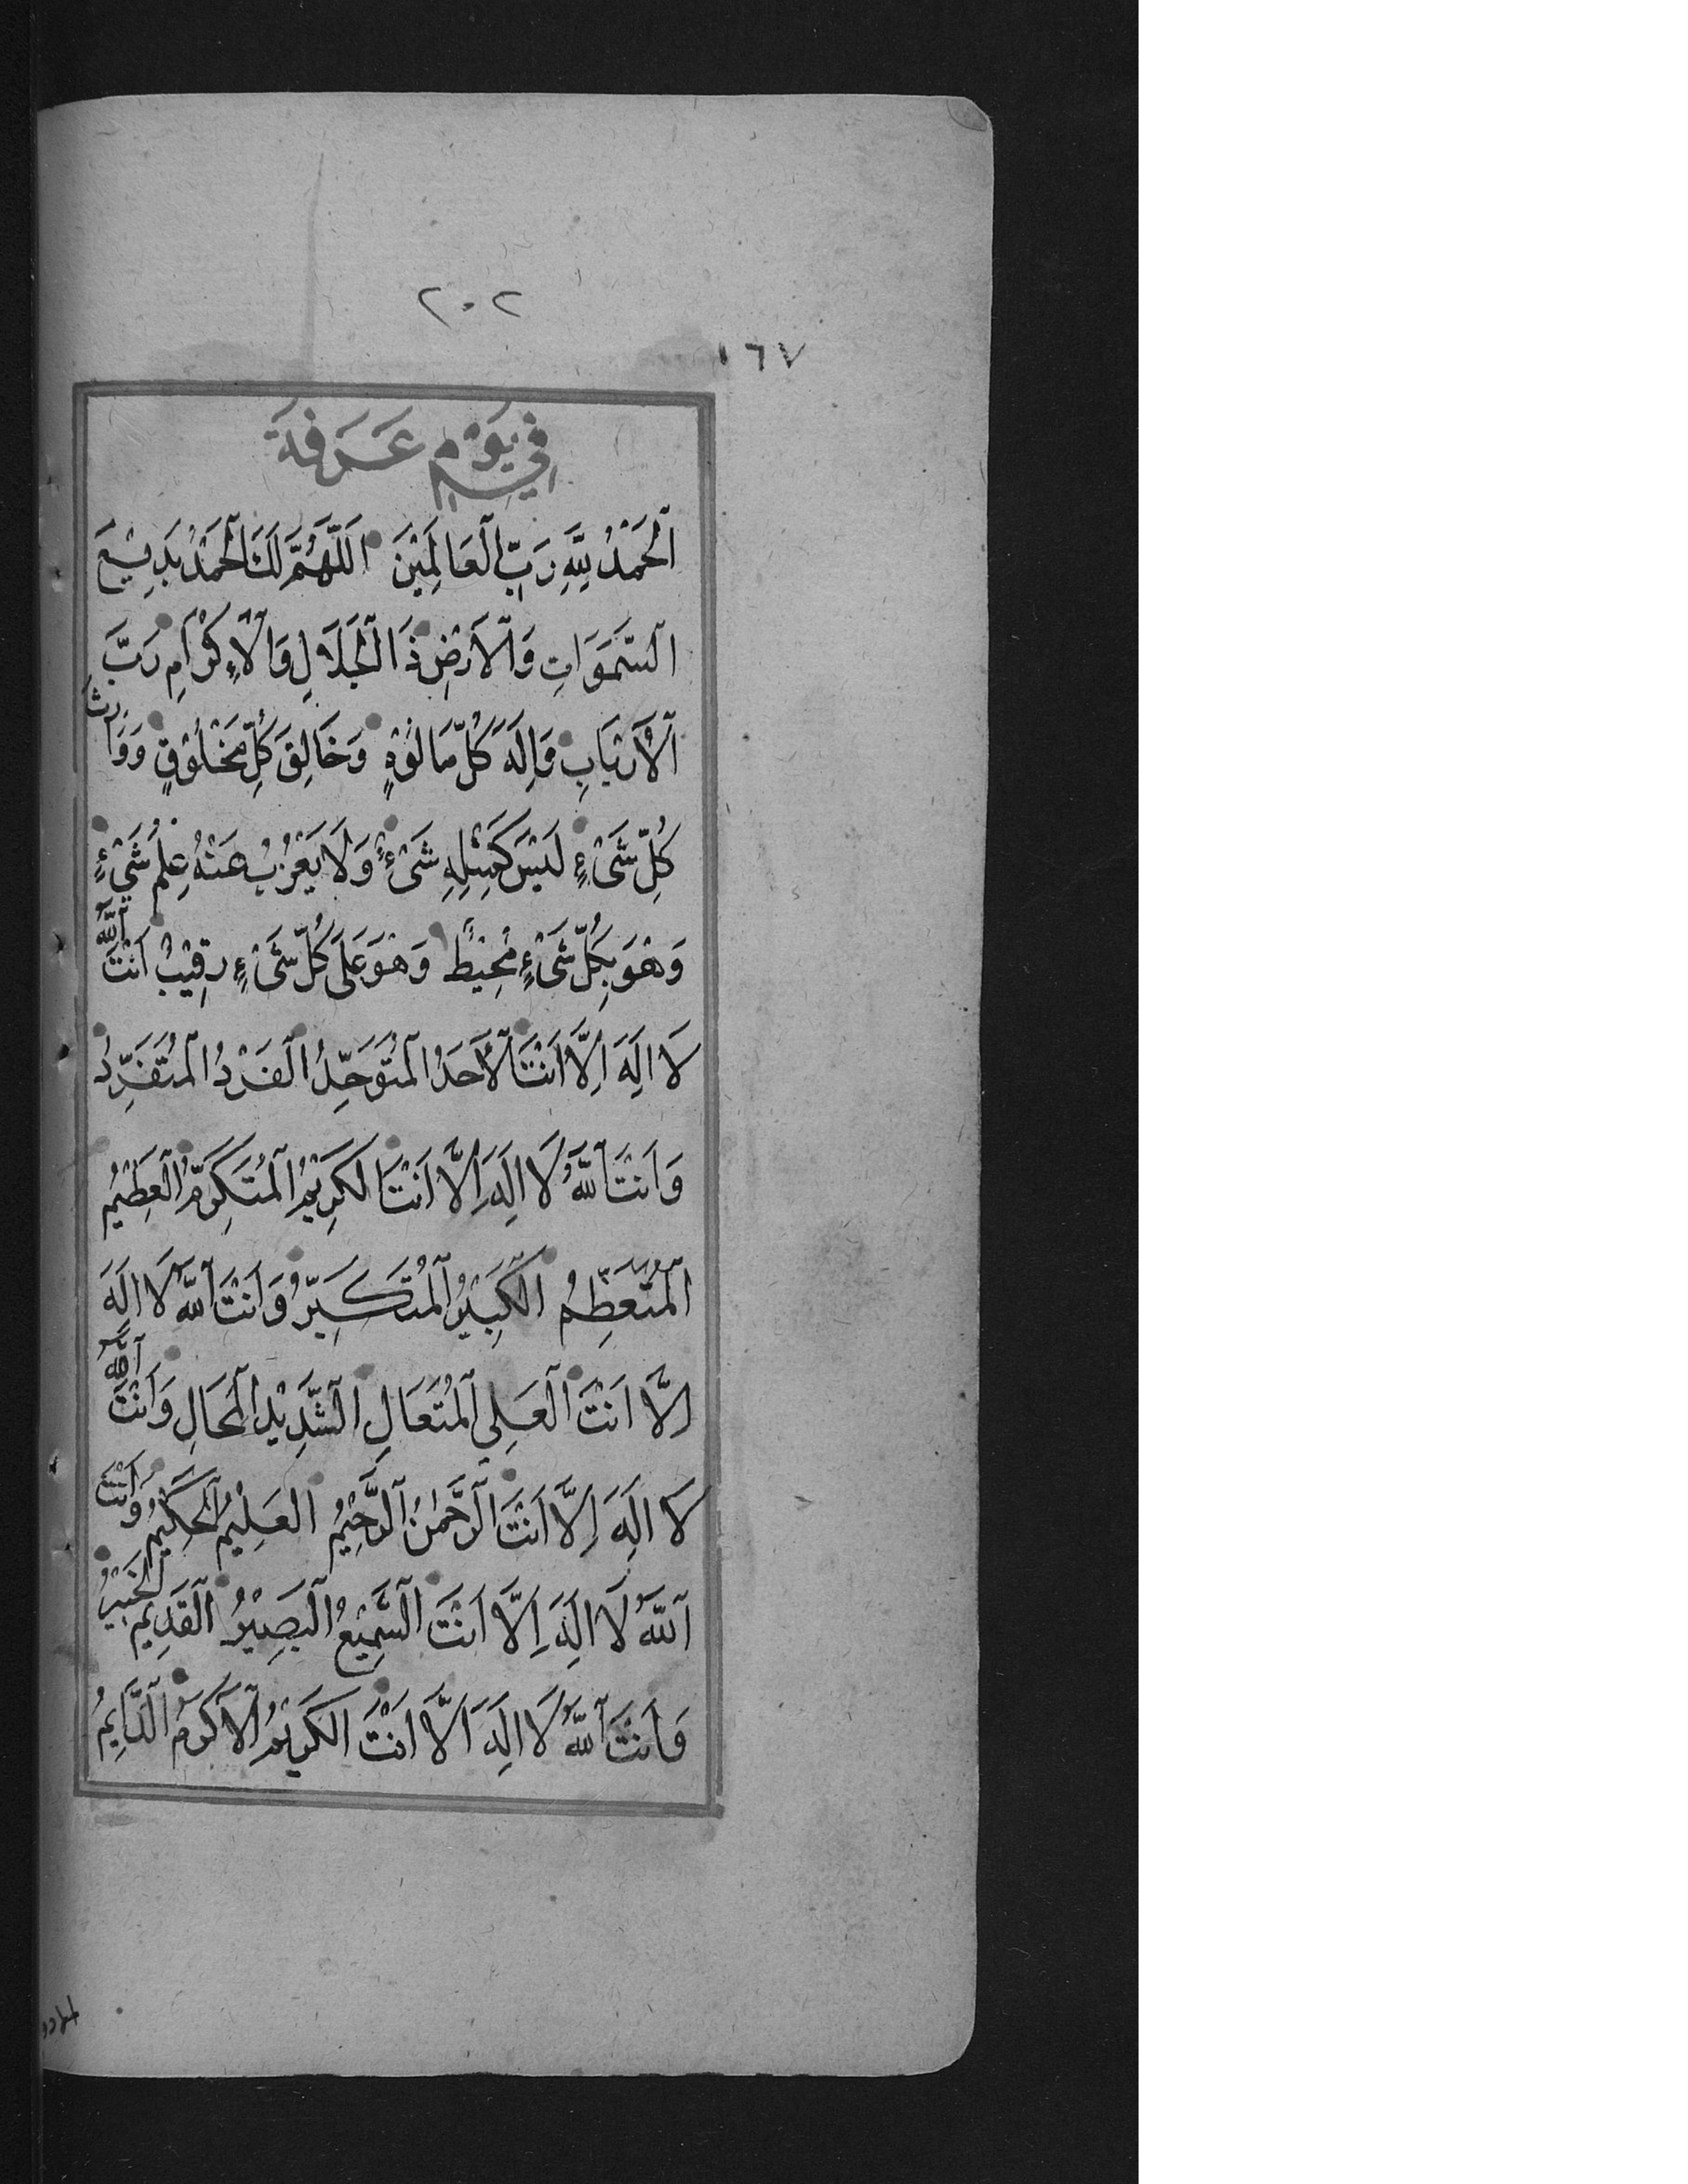 ٢٠٢
١٦٧
فِي يَوْمِ عَرَفَةَ
اَلْحَمْدُ لِلّٰهِ رَبِّ الْعَالَمِيْنَ اَللّٰهُمَّ لَكَ الْحَمْدُ بَدِيْعَ
السَّمَوَاتِ وَالْاَرْضِ ذَا الْجَلَالِ وَالْاِكْرَامِ رَبَّ
الْاَرْبَابِ وَاِلَهَ كُلِّ مَالُوْهٍ وَخَالِقَ كُلِّ مَخْلُوْقٍ وَوَارِثَ
كُلِّ شَىْءٍ لَيْسَ كَمِثْلِهِ شَىْءٌ وَلَا يَعْزُبُ عَنْهُ عِلْمُ شَيْءٍ
وَهُوَ بِكُلِّ شَىْءٍ مُحِيْطٌ وَهُوَ عَلَى كُلِّ شَىْءٍ رَقِيْبٌ اَنْتَ اللّٰهُ
لَا اِلَهَ اِلَّا اَنْتَ الْاَحَدُ الْمُتَوَحِّدُ الْفَرْدُ الْمُتَفَرِّدُ
وَاَنْتَ اللّٰهُ لَا اِلَهَ اِلَّا اَنْتَ الْكَرِيْمُ الْمُتَكَرِّمُ الْعَظِيْمُ
الْمُتَعَظِّمُ الْكَبِيْرُ الْمُتَكَبِّرُ وَاَنْتَ اللّٰهُ لَا اِلَهَ
اِلَّا اَنْتَ الْعَلِى الْمُتَعَالِ الشَّدِيْدُ الْمِحَالِ وَاَنْتَ اللّٰهُ
لَا اِلَهَ اِلَّا اَنْتَ الرَّحْمٰنُ الرَّحِيْمُ الْعَلِيْمُ الْحَكِيْمُ وَاَنْتَ
اللّٰهُ لَا اِلَهَ اِلَّا اَنْتَ السَّمِيْعُ الْبَصِيْرُ الْقَدِيْمُ الْخَبِيْرُ
وَاَنْتَ اللّٰهُ لَا اِلَهَ اِلَّا اَنْتَ الْكَرِيْمُ الْاَكْرَمُ الدَّايِمُ